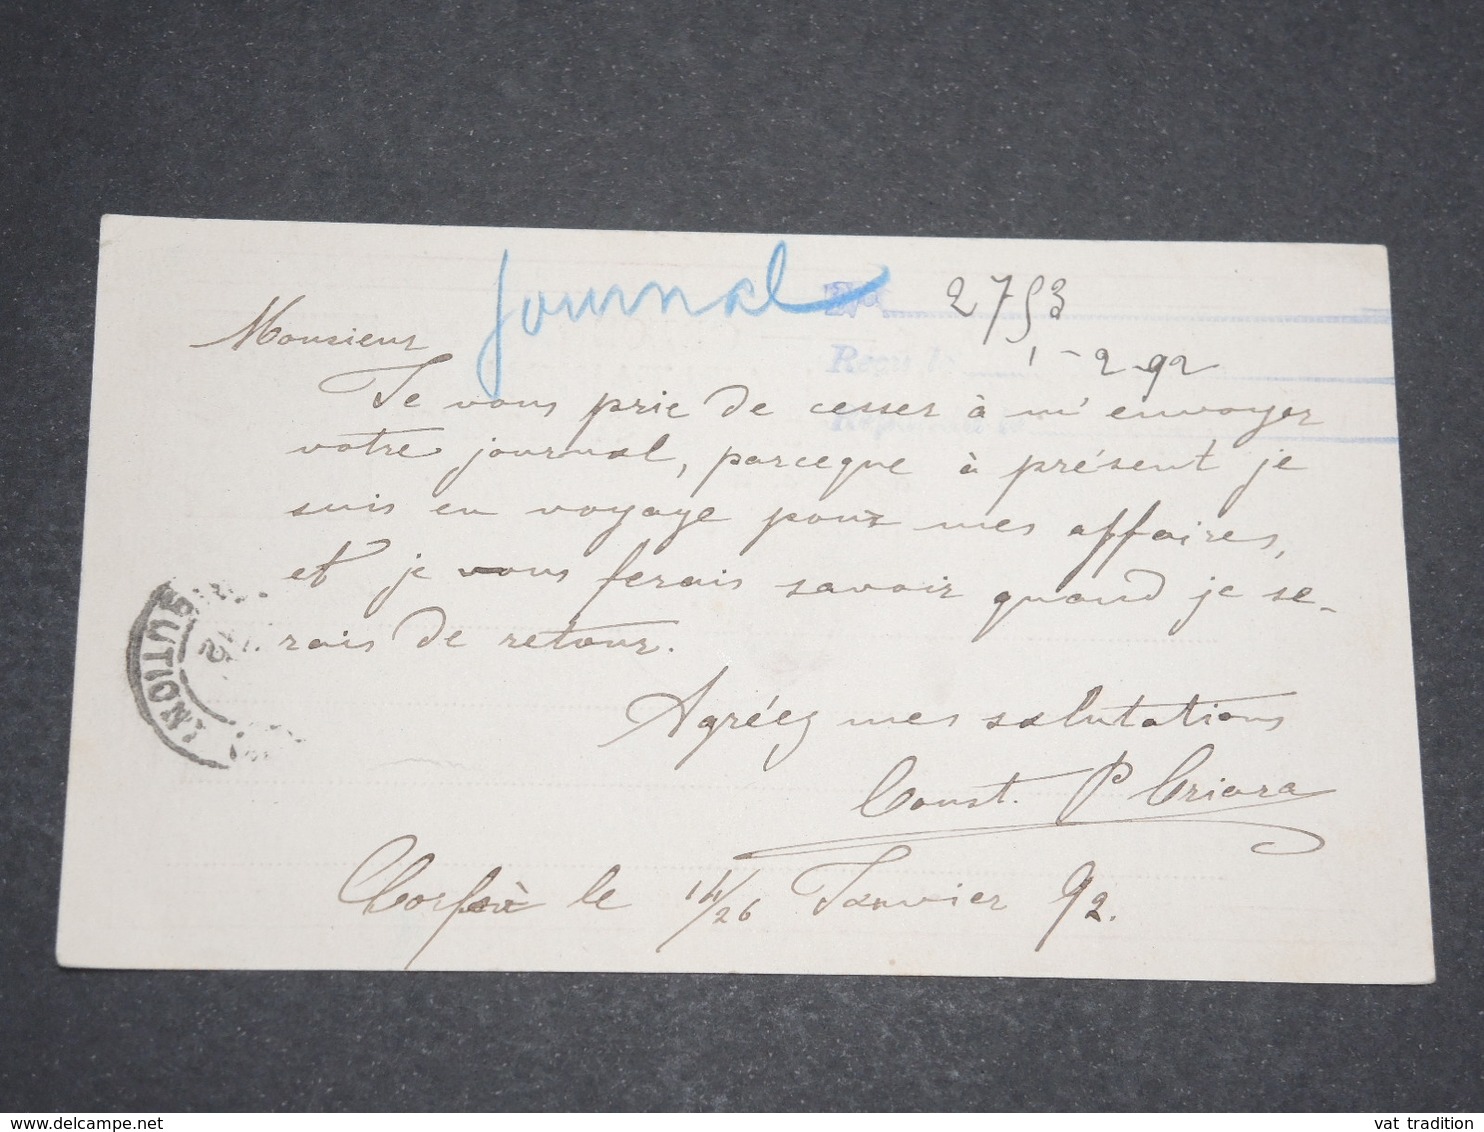 journal
No 2753
Reçu le 1-2-92
Répondu le
Monsieur
Je vous prie de cesser à m'envoyer
votre journal, parceque à présent je
suis en voyage pour mes affaires,
et je vous ferais savoir quand je se-
rais de retour.
Agréez mes salutations
Const. P Criara
Corfou le 14/26 Janvier 92.
BUTION
delcampe.net
vat tradition